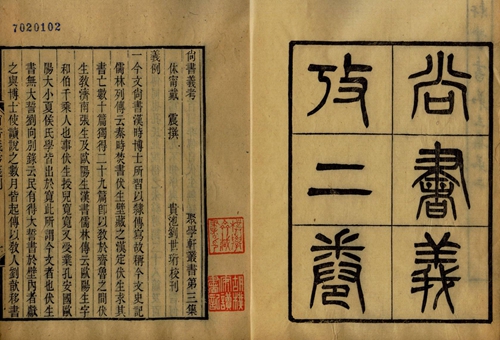 尚書義
攷二卷
7020102
尚書義考 聚學軒叢書第三集
休甯戴 震撰 貴池劉世珩校刊
義例
一今文尚書漢時博士所習以隸傳寫故稱今文史記
儒林列傳云秦時焚書伏生壁藏之漢定伏生求其
書亡數十篇獨得二十九篇即以教於齊魯之間伏
生教濟南張生及歐陽生漢書儒林傳云歐陽生字
和伯千乘人也事伏生授兒寬寬又受業孔安國歐
陽大小夏侯氏學皆出於寬此所謂今文者也伏生
書無大誓劉向別錄云民有得大誓書於壁內者獻
之與博士使讀說之數月皆起傳以教人劉歆移書